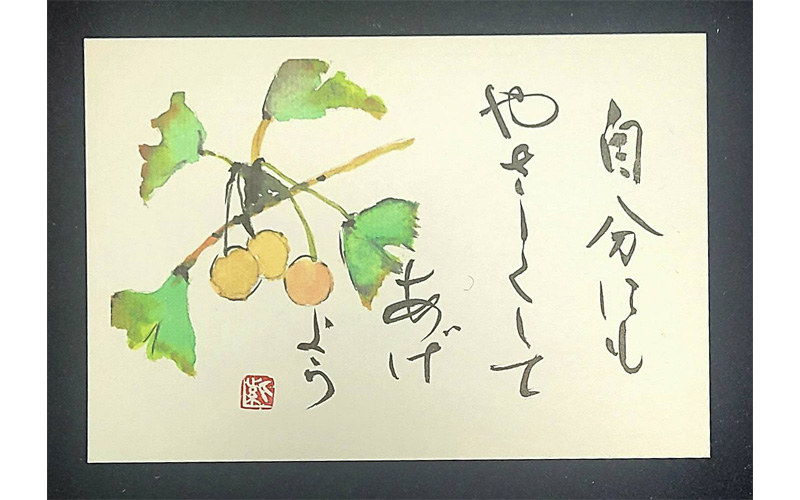 自分にも
やさしくして
あげ
よう